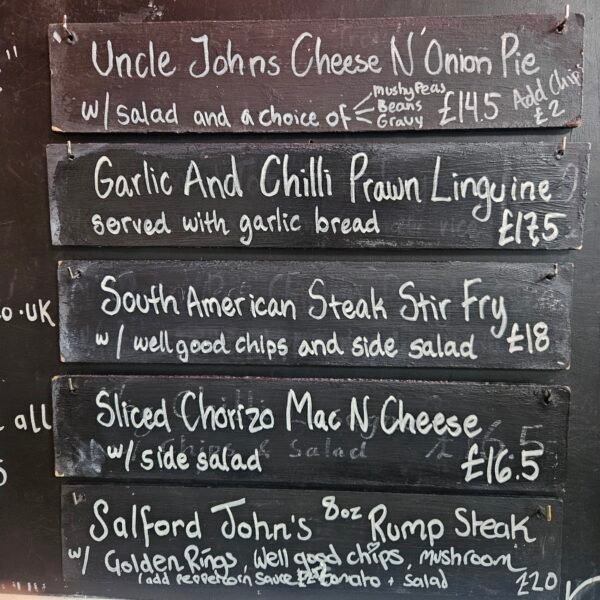 Uncle Johns Cheese N' Onion Pie
w/ salad and a choice of
Mushy Peas
Beans
Gravy
£14.5
Add Chip
£2
Garlic And Chilli Prawn Linguine
served with garlic bread
£17.5
South American Steak Stir Fry
w/ well good chips and side salad
£18
Sliced Chorizo Mac N Cheese
w/ side salad
£16.5
Salford John's 8oz Rump Steak
w/ Golden Rings, Well good chips, mushroom
(add peppercorn sauce £2 tomato + salad
£20
o.uK
all